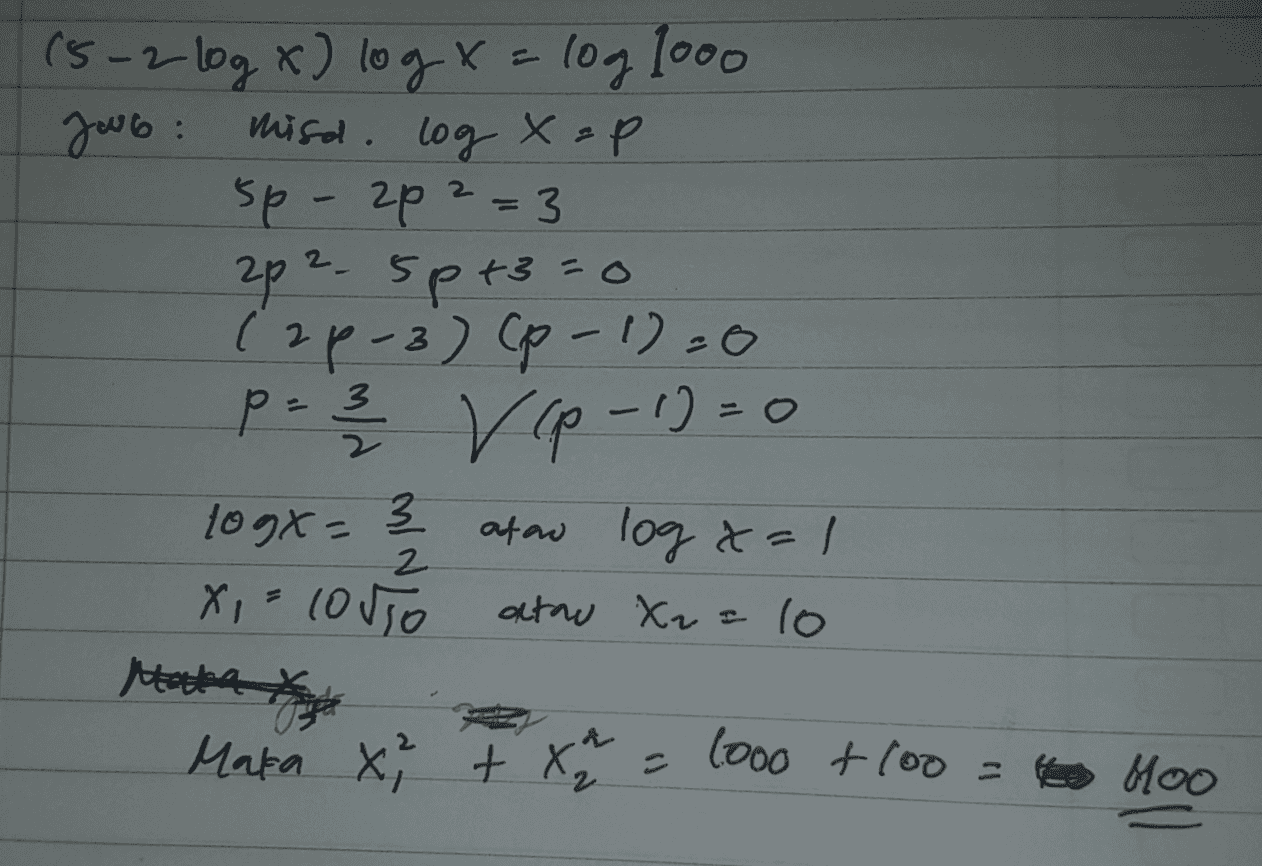 (5 - 2 log x) log x = log 1000
Jawab : misal. log x = p
5p - 2p² = 3
2p² - 5p + 3 = 0
(2p - 3) (p - 1) = 0
p = 3/2 V (p - 1) = 0
log x = 3/2 atau log x = 1
x₁ = 10√10 atau x₂ = 10
Maka x₁² + x₂² = 1000 + 100 = 1100